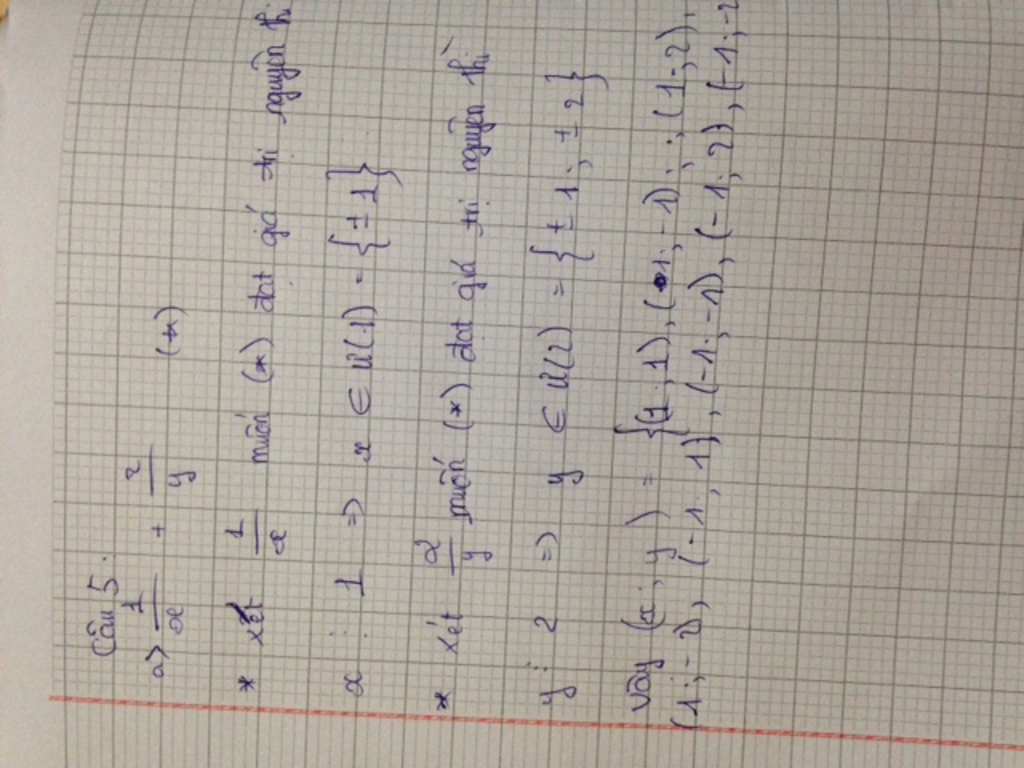 Câu 5.
a) 1/x + 2/y (*)
* xét 1/x muốn (*) đạt giá trị nguyên th
x ⋮ 1 => x ∈ Ư(1) = {± 1}
* xét 2/y muốn (*) đạt giá trị nguyên thì
y ⋮ 2 => y ∈ Ư(2) = {± 1; ± 2}
Vậy (x; y) = {(1; 1), (1; -1); (1; 2);
(1; -2), (-1; 1), (-1; -1), (-1; 2), (-1; -2